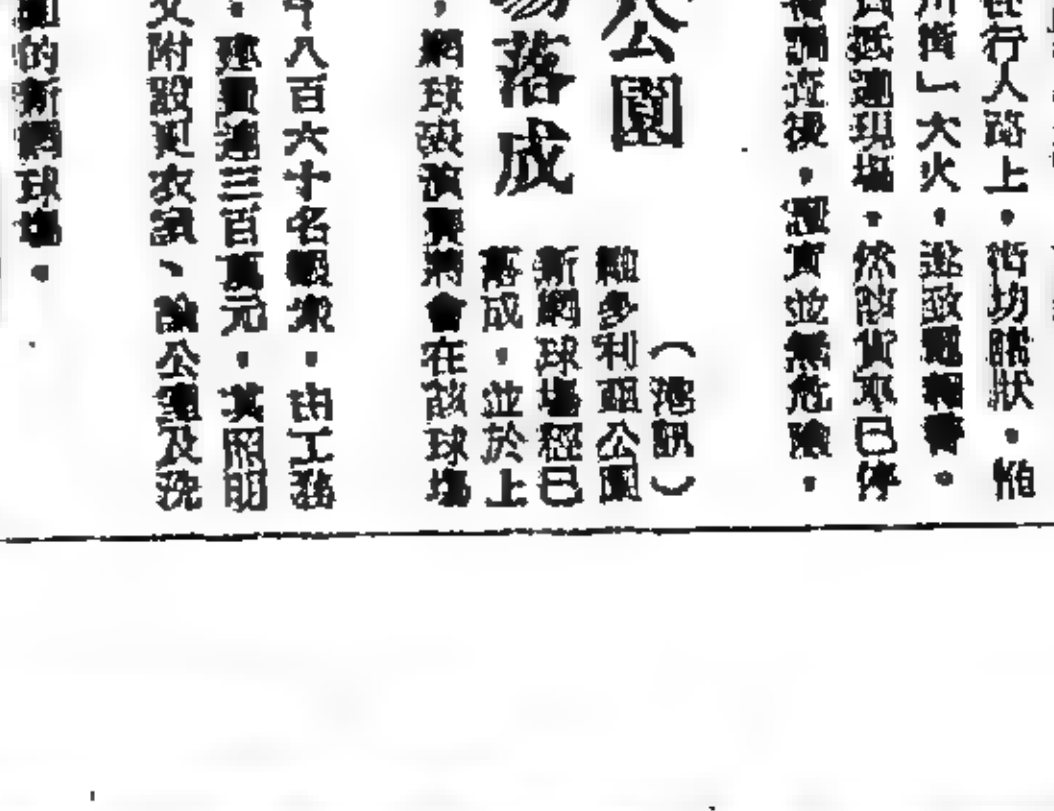 在行人路上・街坊睹狀・惟
川街」大火・遂致電報警。
員抵達現場・然該貨車已停
調查後・證實並無危險・
公園
場落成
（港訊）
維多利亞公園
新網球場經已
落成・並於上
，網球表演賽將會在該球場
千八百六十名觀眾・由工務
・建費達三百萬元・其照明
又附設更衣室、辦公室及洗
園的新網球場・